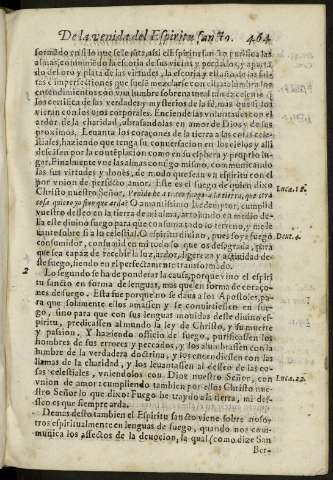 De la venida del Espiritu santo. 464
formãdo en sí lo que se le jũta, assi el Espiritu santo purifica las
almas, consumiẽdo la escoria de sus vicios y pecados, y apartã
do del oro y plata de las virtudes, la escoria y estaño, de las faltas
é imperfecciones que suelẽ mezclarse con ellas. Alumbra los
entendimientos con vna lumbre sobrenatural
certifica de sus verdades y mysterios de la fè, mas que si los
vieran con los ojos corporales. Enciende las voluntades con el
ardor de la charidad, abrasandolas en amor de Dios y de sus
proximos. Leuanta los coraçones de la tierra a las cosas cele-
stiales, haziendo que tenga su conuersacion en los cielos, y alli
descansen por la contẽplacion como en su esphera y proprio lu-
gar. Finalmente vne las almas consigo mismo, comunicando
las sus virtudes y dones, de modo que sean vn espiritu con el
por vnion de perfecto amor. Este es el fuego de quien dixo
Christo nuestro Señor, Venido he a traer fuego a la tierra, que otra
cosa quiero yo sino que arda? O amantissimo Redemptor, cumplid
vuestro deseo en la tierra de mi alma, arrojando en medio de-
lla este diuino fuego para que cõsuma todo lo terreno, y me le-
uante sobre si a lo celestial. O Espiritu diuino, pues soys fuego
consumidor, consumid en mi todo lo que os desagrada, para
que sea capaz de recebir la luz, ardor, ligereza y actiuidad de-
se fuego, siendo en el perfectamente transformado.
2 Lo segundo se ha de ponderar la causa, porque vino el espiri
tu sancto en forma de lenguas, mas que en forma de coraço-
nes de fuego. Esta fue porque no se daua a los Apostoles, pa-
ra que solamente ellos amassen y se conuirtiessen en fue-
go, sino para que con sus lenguas mouidas deste diuino es-
piritu, predicassen al mundo la ley de Christo, y su muerte
y passion. Y haziendo officio de fuego, purificassen los
hombres de sus errores y peccados, y los alumbrassen con la
lumbre de la verdadera doctrina, y los encendiessen con las
llamas de la charidad, y los leuantassen al desseo de las co-
sas celestiales, vniendolos con Dios nuestro Señor, con
vnion de amor: cumpliendo tambien por ellos Christo nue-
stro Señor lo que dixo: Fuego he traydo a la tierra, mi des-
seo es que siempre arda.
Demas desto tambien el Espiritu sancto viene sobre noso-
tros espiritualmente en lenguas de fuego, quando nos co-
munica los affectos de la deuocion, la qual (como dize San
Ber-
Luca. 12.
Deut. 4.
Luca. 12.